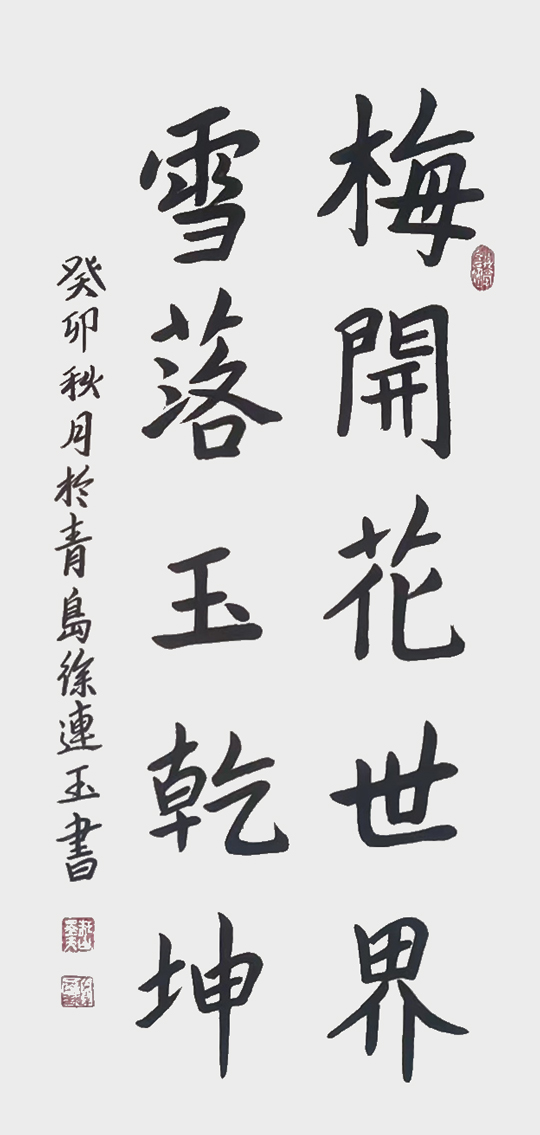 梅開花世界
雪落玉乾坤
癸卯秋月於青島徐連玉書